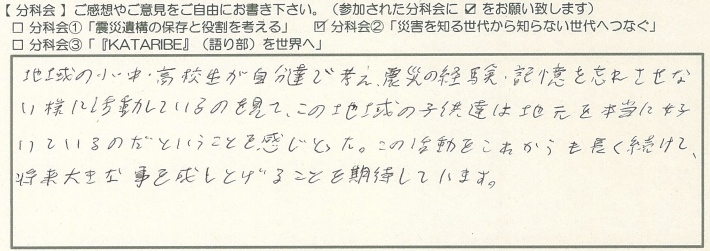 【 分科会 】 ご感想やご意見をご自由にお書き下さい。（参加された分科会に ☑ をお願い致します）
□ 分科会①「震災遺構の保存と役割を考える」　☑ 分科会②「災害を知る世代から知らない世代へつなぐ」
□ 分科会③「『KATARIBE』（語り部）を世界へ」
地域の小中・高校生が自分達で考え、震災の経験・記憶を忘れさせな
い様に活動しているのを見て、この地域の子供達は地元を本当に好
いているのだということを感じとった。この活動をこれからも長く続けて、
将来大きな事を成しとげることを期待しています。